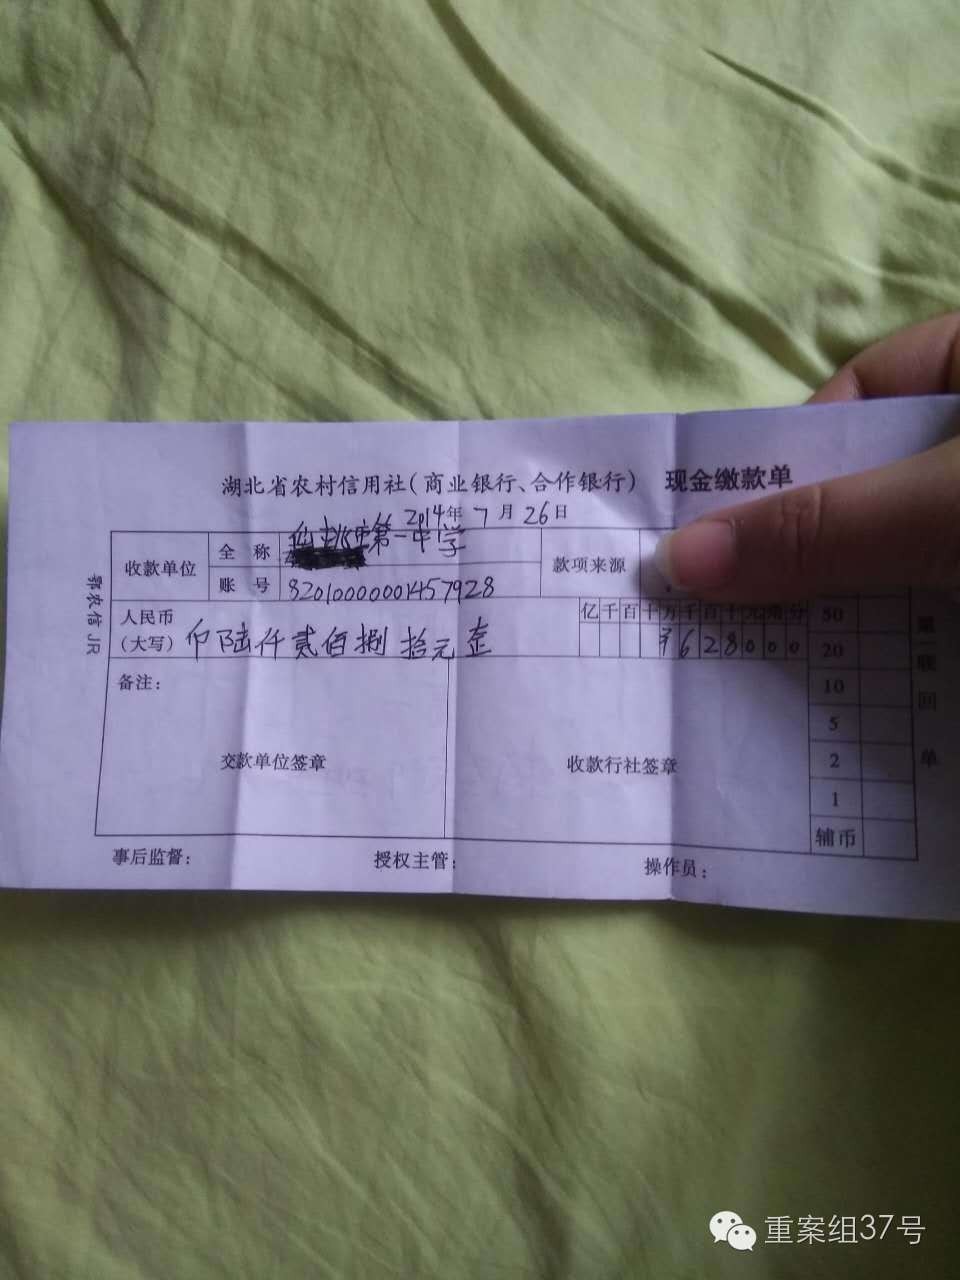 湖北省农村信用社(商业银行、合作银行) 现金缴款单
2014年 7 月 26 日
收款单位 全 称 第一中学 款项来源
账 号 82010000001457928
人民币 亿 千 百 十 万 千 百 十 元 角 分 50
(大写) 陆仟贰佰捌拾元 ¥ 6 2 8 0 0 0 20
备注: 10
5
交款单位签章 收款行社签章 2
1
辅币
事后监督: 授权主管: 操作员:
鄂农信 JR
第一联回单
重案组37号